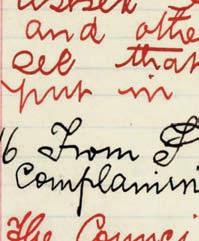 and othe
see that
put in
6 From
Complainin
The Counci